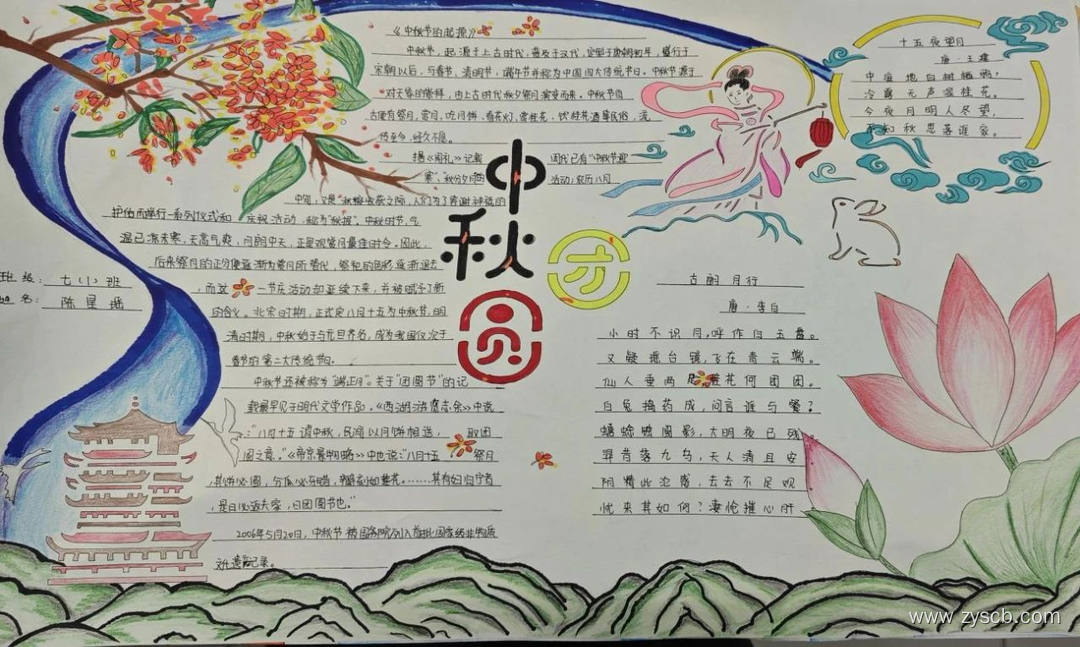 《中秋节的起源》
中秋节,起源于上古时代,普及于汉代,定型于唐朝初年,盛行于
宋朝以后,与春节、清明节、端午节并称为中国四大传统节日。中秋节源于
对天象的崇拜,由上古时代秋夕祭月演变而来。中秋节自
古便有祭月、赏月、吃月饼、看花灯、赏桂花、饮桂花酒等民俗,流
传至今,经久不息。
据《周礼》记载 周代已有"中秋夜迎
寒"、"秋分夕月的 活动;农历八月
中旬,又是
护佑而举行一系列仪式和 庆祝活动,称为"秋报"。中秋时节,气
温已凉未寒,天高气爽,月朗中天,正是观赏月最佳时令。因此,
后来祭月的 赏月所替代,祭祀的色彩逐渐退去
,而这 一节庆活动却延续下来,并被赋予了新
的含义。北宋时期,正式定八月十五为中秋节,明
清时期,中秋始于与元旦齐名,成为我国仅次于
春节的第二大传统节日。
中秋节还被称为"端正月"。关于"团圆节"的记
载最早见于明代文学作品。《西湖游览志余》中说
:"八月十五谓中秋,民间以月饼相送, 取团
圆之意。"《帝京景物略》中也说:"八月十五 祭月
,其饼必圆,分瓜必牙错,瓣刻如莲花。……其有妇归宁者
,是日必返夫家,曰团圆节也。"
2006年5月20日,中秋节被国务院列入首批国家级非物质
文化遗产记录。
中秋
团圆
班级:七(1)班
姓名:陈星
十五夜望月
唐·王建
中庭地白树栖鸦,
冷露无声湿桂花。
今夜月明人尽望,
不知秋思落谁家。
古朗月行
唐·李白
小时不识月,呼作白玉盘。
又疑瑶台镜,飞在青云端。
仙人垂两足,桂花何团团。
白兔捣药成,问言谁与餐?
蟾蜍蚀圆影,大明夜已残
羿昔落九乌,天人清且安
阴精此沦惑,去去不足观
忧来其如何?凄怆摧心肝
www.zyscb.com